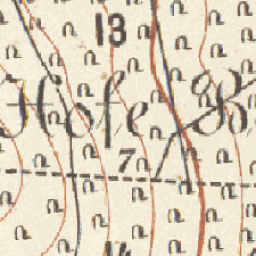 13
Höfe B
7
14